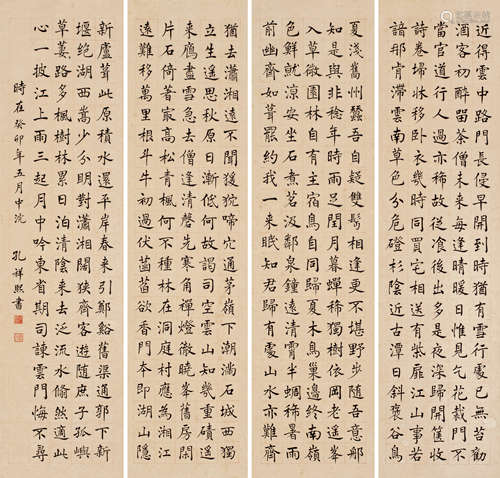 近得雲中路門長侵早開到時微有雪行處已無苔勸
酒客初醉留茶僧未來每逢晴暖日惟見乞花栽門不
當官道行人過亦稀故從食後出多是夜深歸開篋收
詩卷埽牀移臥衣幾時同買宅相送有柴扉江山事若
諳那肯滯雲南草色分危磴杉陰近古潭日斜褒谷鳥
夏淺巂州蠶吾自疑雙鬢相逢更不堪野步隨吾意那
知是與非稔年時雨足閏月暮蟬稀獨樹依岡老遙峯
入草微園林自有主宿鳥自同歸夏木鳥巢邊終南嶺
色鮮就涼安坐石煮茗汲鄰泉鐘遠清霄半蜩稀暑雨
前幽齋如葺罷約我一來眠知君歸有處山水亦難齊
猶去瀟湘遠不聞猨狖啼穴通茅嶺下潮滿石城西獨
立生遥思秋原日漸低何故謁司空雲山知幾重磧遥
來鴈盡雪急去僧逢清磬先寒角禪燈徹曉峯舊房閑
片石倚著最高松青楓何不種林在洞庭村應為三湘
遠難移萬里根斗牛初過伏菡萏欲香門本即湖山隱
新廬葺此原積水還平岸春來引鄭谿舊渠通郭下新
堰絕湖西嵩少分明對瀟湘闊狹齊客遊隨庶子孤嶼
草萋路多楓樹林累日泊清陰來去泛流水翛然適此
心一披江上雨三起月中吟東省期司諫雲門悔不尋
時在癸卯年五月中浣 孔祥熙書